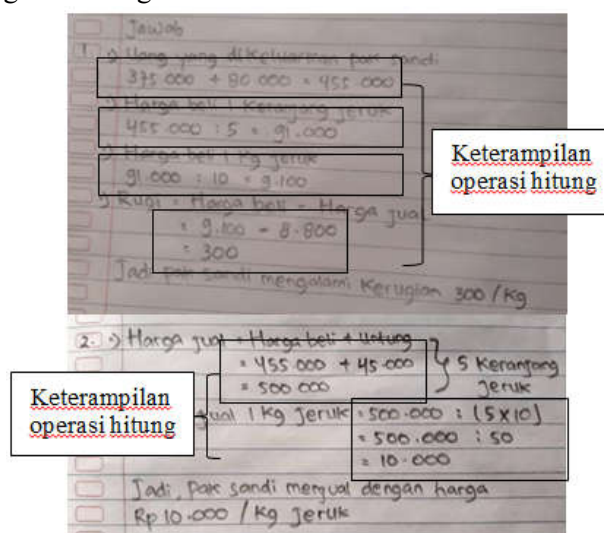 Jawab
1. → Uang yang dikeluarkan pak sandi
375.000 + 80.000 = 455.000
→ Harga beli 1 Keranjang jeruk
455.000 : 5 = 91.000
→ Harga beli 1 kg jeruk
91.000 : 10 = 9.100
→ Rugi = Harga beli - Harga jual
= 9.100 - 8.800
= 300
Jadi pak sandi mengalami Kerugian 300 / Kg
Keterampilan
operasi hitung
2. → Harga jual = Harga beli + Untung
= 455.000 + 45.000
= 500.000
5 Keranjang
Jeruk
Keterampilan
operasi hitung
jual 1 Kg Jeruk = 500.000 : (5x10)
= 500.000 : 50
= 10.000
Jadi, Pak sandi menjual dengan harga
Rp 10.000 / Kg Jeruk